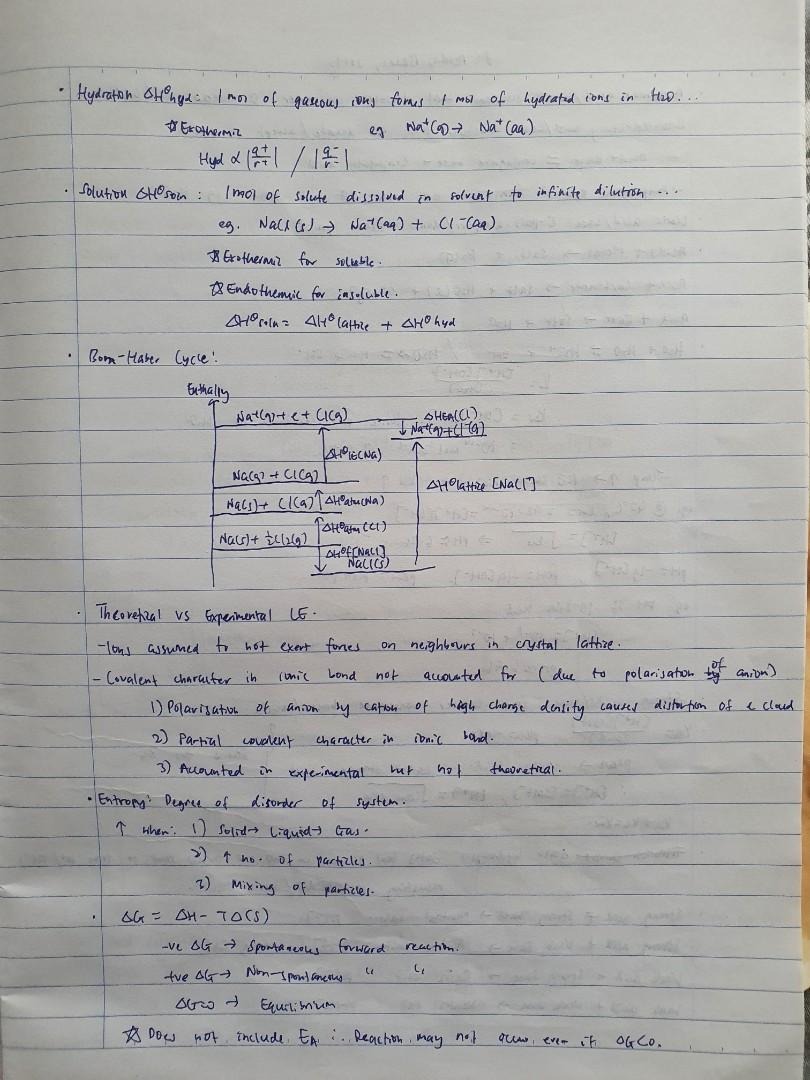 • Hydration ΔH°hyd: 1 mol of gaseous ions forms 1 mol of hydrated ions in H2O...
☆ Exothermic eg Na⁺(g) → Na⁺(aq)
Hyd ∝ |q+/r+| / |q-/r-|
• Solution ΔH°soln : 1 mol of solute dissolved in solvent to infinite dilution ...
eg. NaCl(s) → Na⁺(aq) + Cl⁻(aq)
☆ Exothermic for soluble.
☆ Endothermic for insoluble.
ΔH°soln = ΔH°lattice + ΔH°hyd
• Born-Haber Cycle:
Enthalpy
Na⁺(g) + e + Cl(g) ΔHEA(Cl)
↓ Na⁺(g) + Cl⁻(g)
ΔH°IE(Na)
Na(g) + Cl(g) ΔH°lattice [NaCl]
Na(s) + Cl(g) ↑ ΔH°atm(Na)
↑ ΔH°atm(Cl)
Na(s) + ½Cl2(g)
↓ ΔH°f[NaCl]
NaCl(s)
• Theoretical vs Experimental LE.
- Ions assumed to not exert forces on neighbours in crystal lattice.
- Covalent character in ionic bond not accounted for (due to polarisation of anion)
1) Polarisation of anion by cation of high charge density causes distortion of e cloud
2) Partial covalent character in ionic bond.
3) Accounted in experimental but not theoretical.
• Entropy: Degree of disorder of system.
↑ when: 1) Solid → Liquid → Gas.
2) ↑ no. of particles.
3) Mixing of particles.
• ΔG = ΔH - TΔ(S)
-ve ΔG → Spontaneous forward reaction.
+ve ΔG → Non-spontaneous " "
ΔG=0 → Equilibrium
☆ Does not include EA ∴ Reaction may not occur even if ΔG<0.